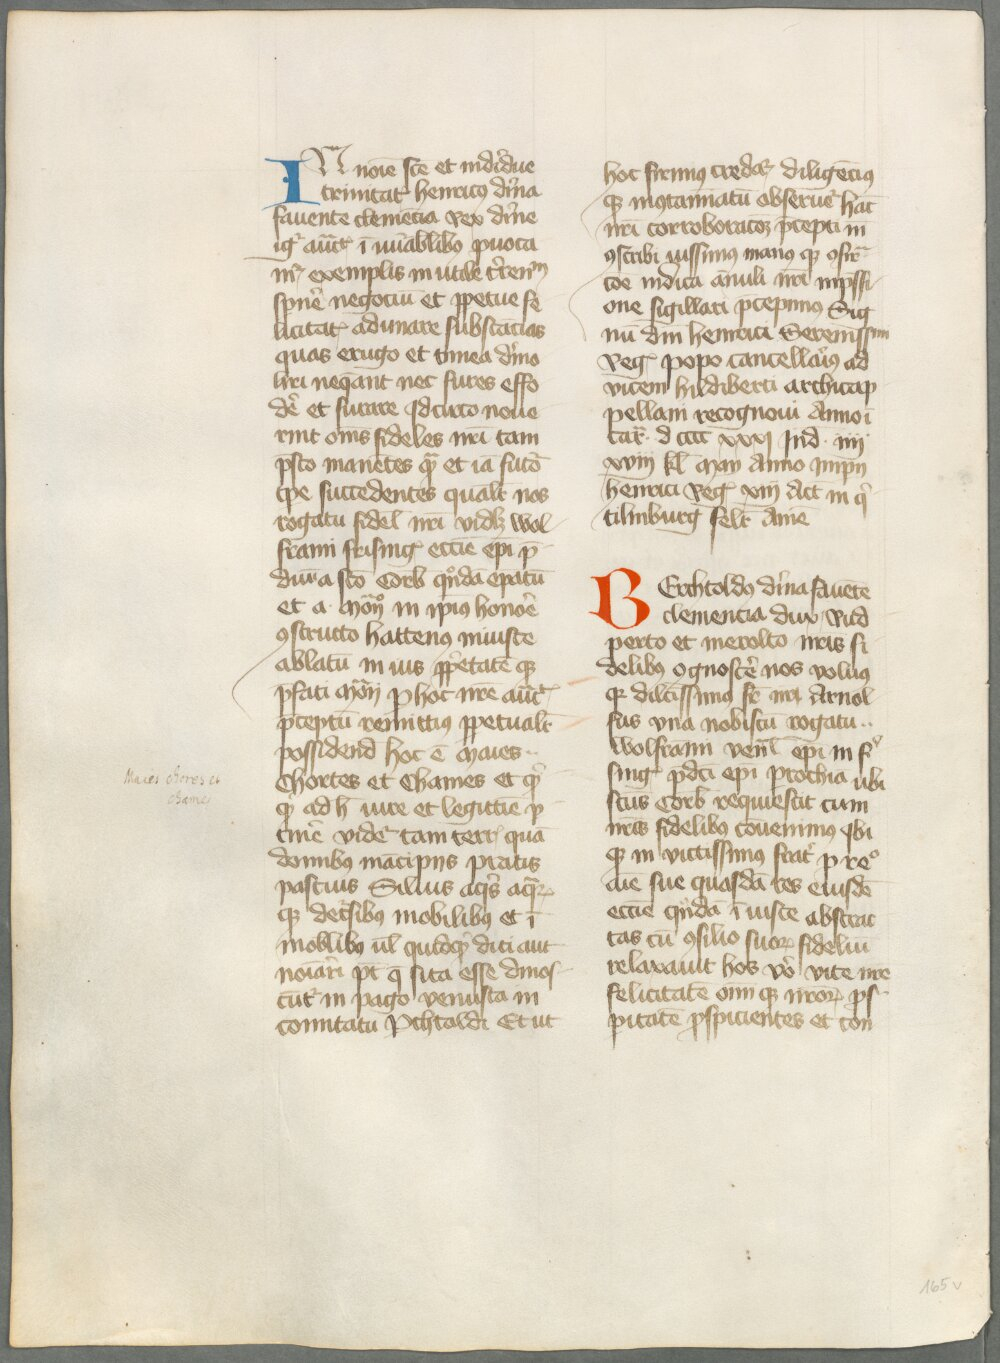 In noie̅ sce̅ et indiuidue
trinitatꝭ henricus diuina
fauente clemencia Rex diuine
innumerabilibꝫ quoca
exemplis in utile terrenum
negociu̅ et ꝑpetue fe
licitatꝭ adunare substancias
quas erugo et tinea diuino
neqeant nec fures effo
de̅ et furare Ideirco noue
rint om̅s fideles nr̅i tam
pn̅to manentes qua̅ et ia̅ futo̅
tp̅e succedentes qualit̅ nos
rogatu fidel̅ nr̅i videlꝫ wol
frami frisingꝭ eccl̅ie ep̅i p̅
dium a sc̅o Corb̅ qn̅da̅ ep̅atu̅
et a in ip̅ius honore̅
ꝯstructo hattenus iniuste
ablatu̅ in ius ꝓprietate̅ qꝫ
p̅fati p̱ hoc nr̅e auct̅
p̅ceptu̅ remittimus ꝑpetualit̅
possidend̅ hoc e̅ Maies
Chortes et Chames et
ad h̅ iure et legittie̅ ꝑ
tine̅ videt̅ tam terrꝭ qua̅
domibus mancipijs pratis
pascuis Siluis aqꝭ aqruꝫ
qꝫ decursibus mobilibus et i̅
mobilibus ul̅ quidqd̅ dici aut
no̅iari pt̅ q̅ sita esse dinos
cu̅t̅ in pago venusta in
comitatu Pchtoldi Et ut
hoc firmius credat̅ diligencius
qꝫ in obseruet̅ hac̅
nr̅i corroboracōꝫ p̅cepti in̅
ꝯscribi iussimus manus qꝫ
indicta anuli nr̅i impressi
one sigillari p̅cepimus Sig
nu̅ dn̅i henrici Serenissimi
Regꝭ popo cancellarius ad
vicem hildiberti archicap
pellani recognoui Anno i̅
car̅ d cccc xxxj Ind iiij
xviij kl̅ May Anno imperij
henrici Regꝭ xiij Act̅ in q
tilinburg felic̅ Ame̅
BErchtoldus diuina fauente
clemencia dux Rud
perto et merolto nr̅is fi
delibus ꝯgnosce̅ nos volumus
qꝫ dilectissimus fr̅ nr̅i Arnol
fus vna nobiscu̅ rogatu
Wolframi ven̅l̅ ep̅i in fri
singꝭ p̅dc̅i ep̅i prochia ubi
sc̅us Corb̅ requiescit cum
nr̅is fidelibus co̅uenimus ibi
qꝫ inuictissimus frat̅ pro re
aie̅ sue quasda̅ res eiusde̅
eccl̅ie qn̅da̅ iniuste abstrac
tas cu̅ ꝯsilio suoꝝ fideliu̅
relaxauit hos vo̅ vite nr̅e
felicitate̅ omniu̅ qꝫ nr̅oꝝ ꝓs
pitate̅ ꝓspicientes et con
Maies chores et
chames
165v